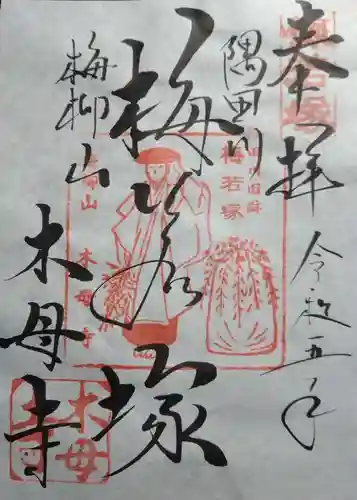 奉拝
令和五年
隅田川
梅若塚
梅柳山
木母寺
梅若塚
木母寺
木母寺